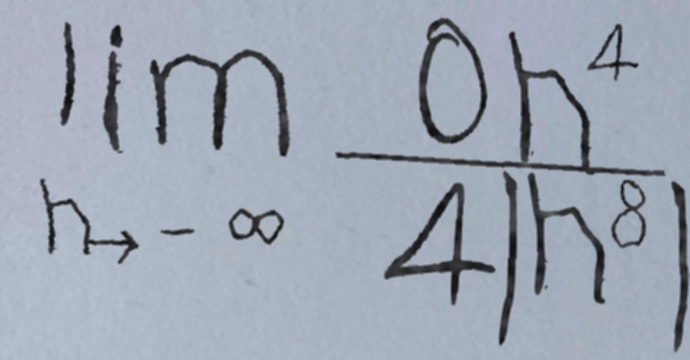 lim 0h⁴
h→-∞ 4|h⁸|